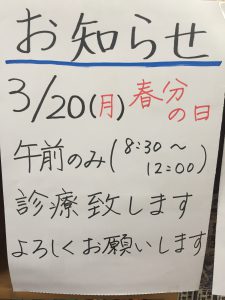 お知らせ
3/20(月)春分の日
午前のみ(8:30〜12:00)
診療致します
よろしくお願いします